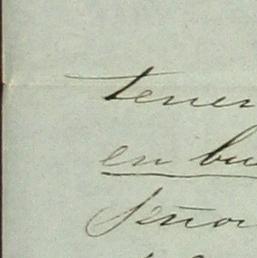 tener
en bu
Señor